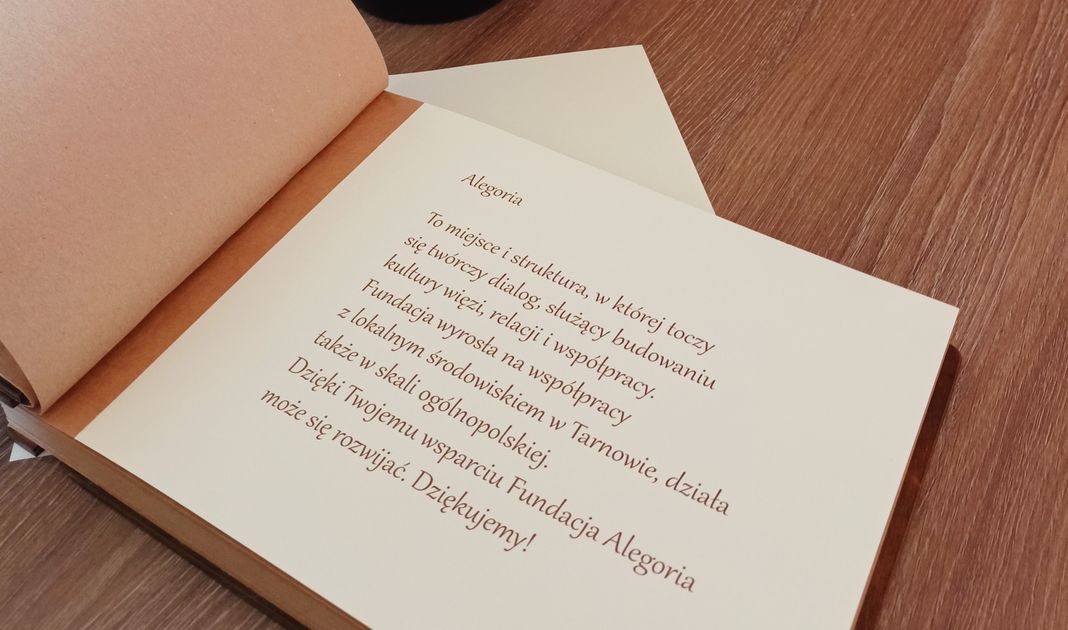 Alegoria
To miejsce i struktura, w której toczy
się twórczy dialog, służący budowaniu
kultury więzi, relacji i współpracy.
Fundacja wyrosła na współpracy
z lokalnym środowiskiem w Tarnowie, działa
także w skali ogólnopolskiej.
Dzięki Twojemu wsparciu Fundacja Alegoria
może się rozwijać. Dziękujemy!